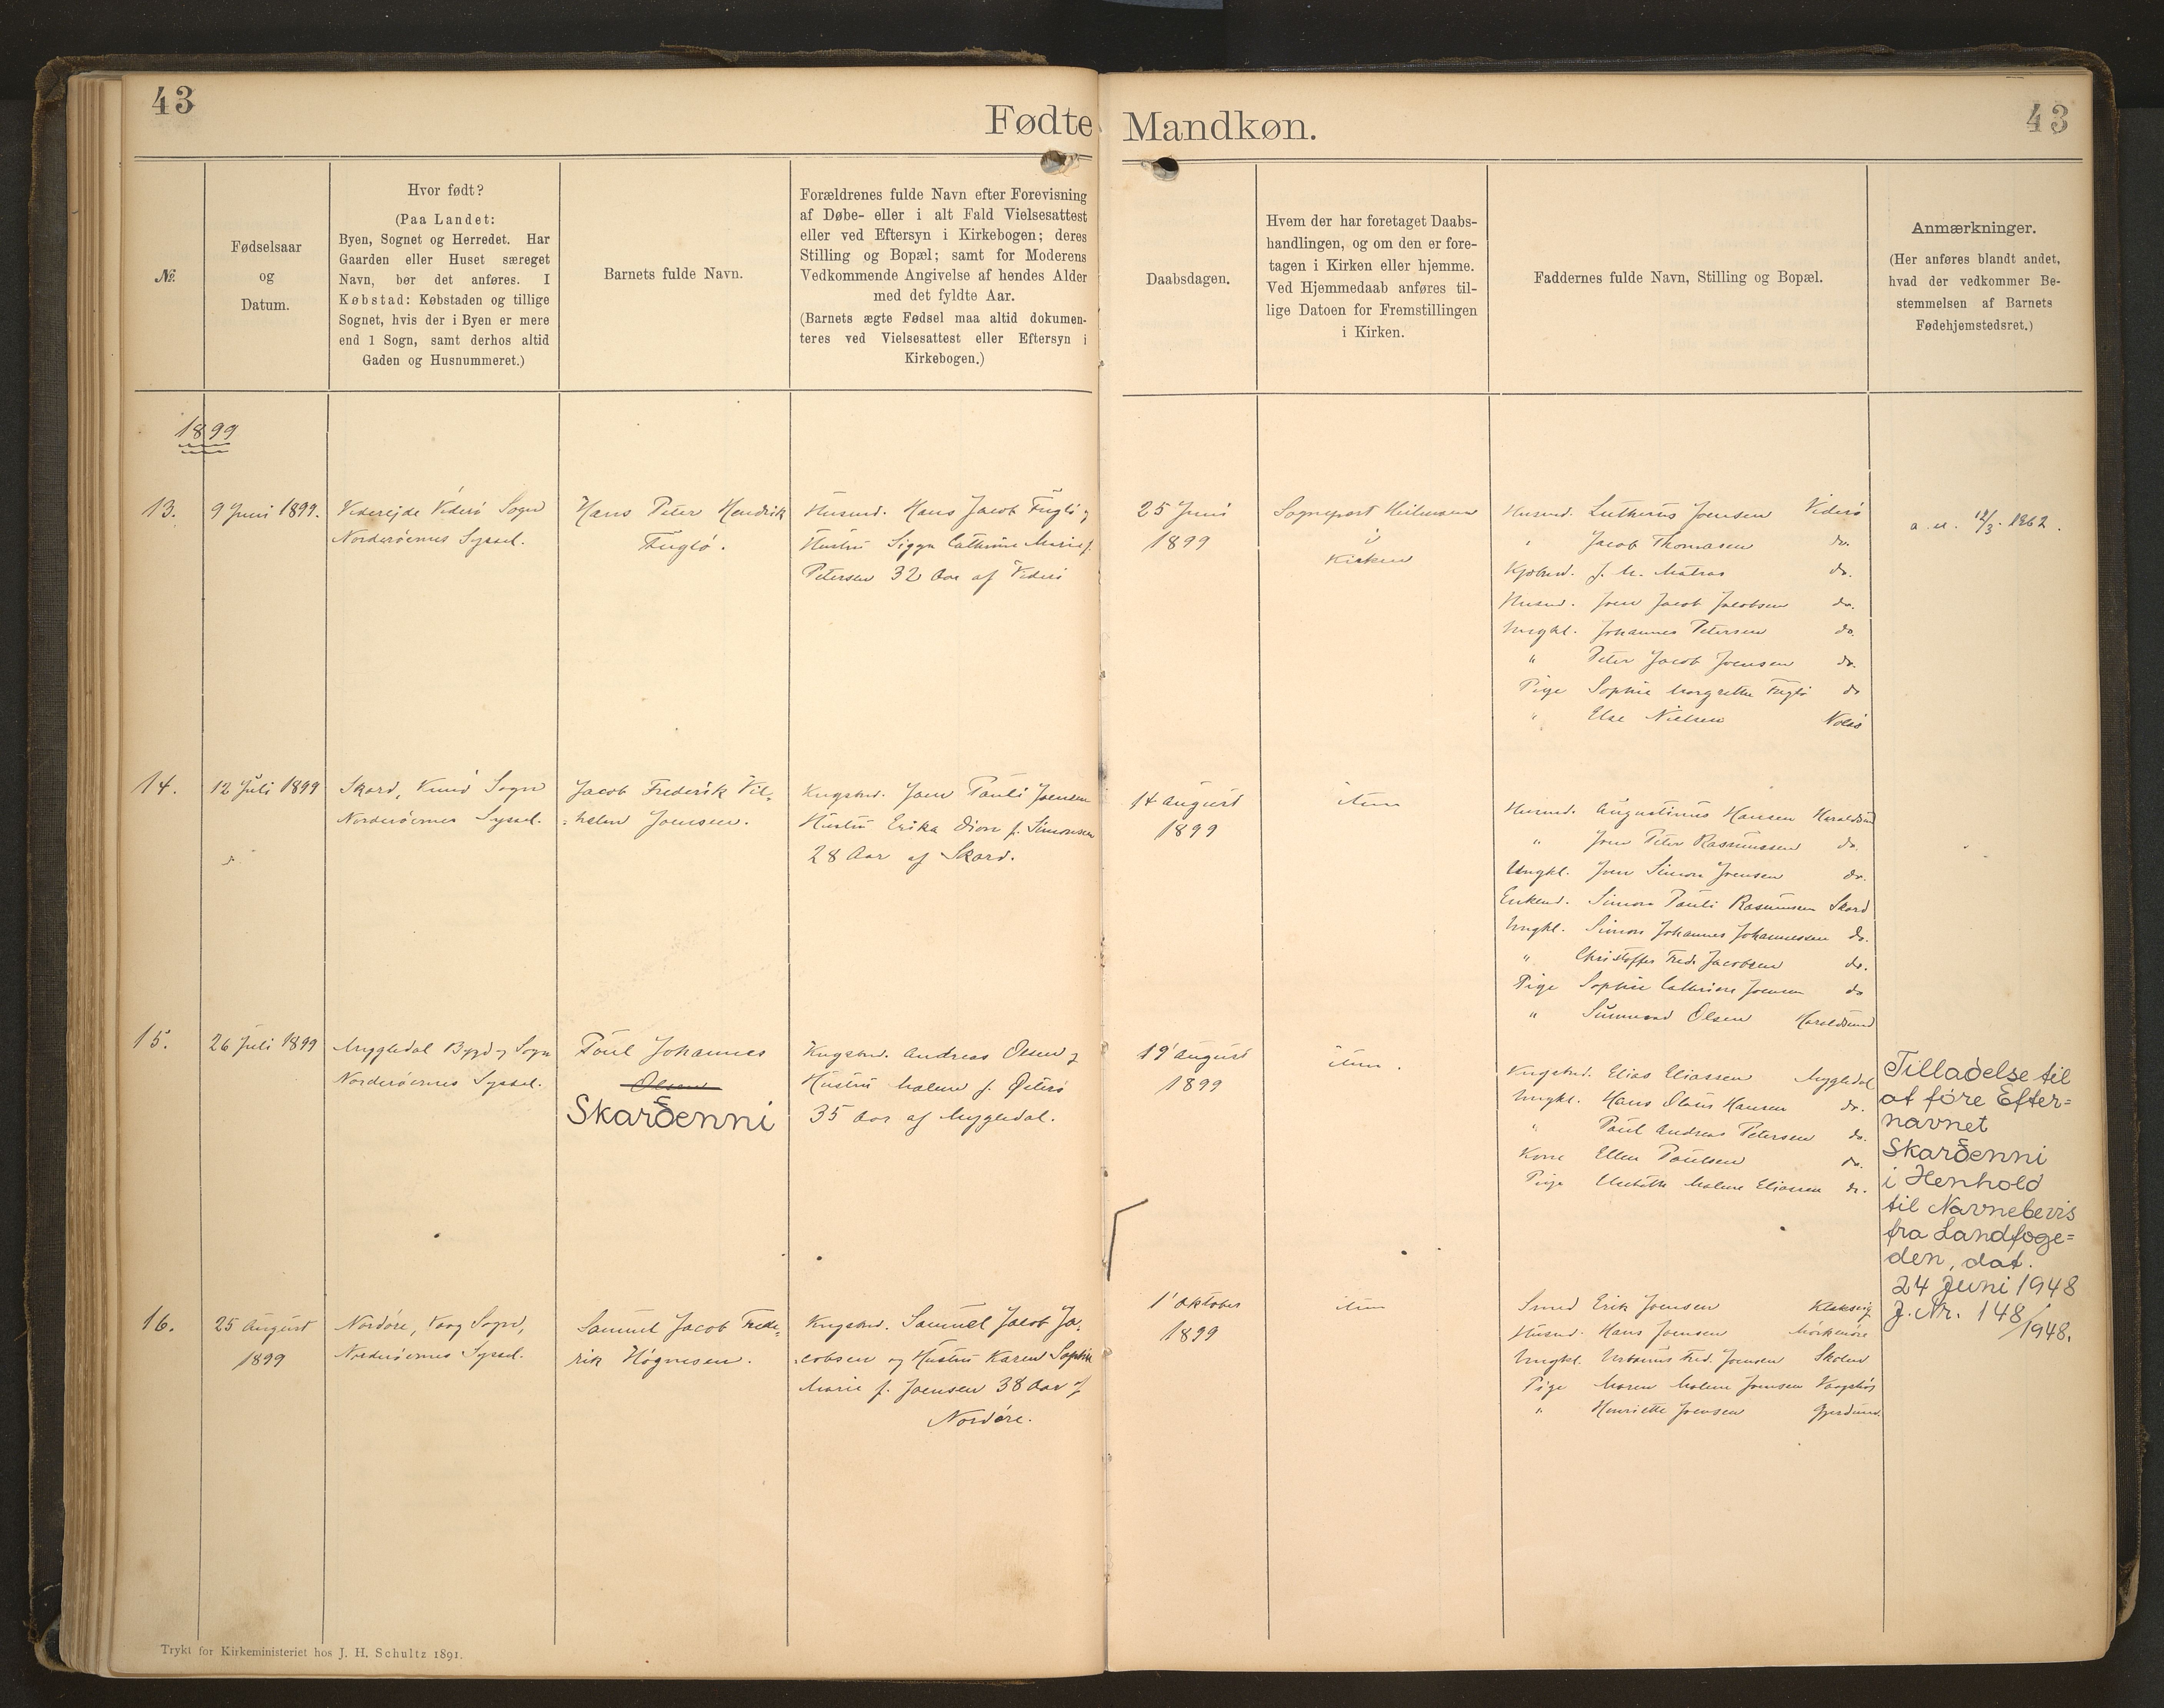 43
Fødte
Mandkøn.
43
№.
Fødselsaar
og
Datum.
Hvor født?
(Paa Landet:
Byen, Sognet og Herredet. Har
Gaarden eller Huset særeget
Navn, bør det anføres. I
Købstad: Købstaden og tillige
Sognet, hvis der i Byen er mere
end 1 Sogn, samt derhos altid
Gaden og Husnummeret.)
Barnets fulde Navn.
Forældrenes fulde Navn efter Forevisning
af Døbe- eller i alt Fald Vielsesattest
eller ved Eftersyn i Kirkebogen; deres
Stilling og Bopæl; samt for Moderens
Vedkommende Angivelse af hendes Alder
med det fyldte Aar.
(Barnets ægte Fødsel maa altid dokumen-
teres ved Vielsesattest eller Eftersyn i
Kirkebogen.)
Daabsdagen.
Hvem der har foretaget Daabs-
handlingen, og om den er fore-
tagen i Kirken eller hjemme.
Ved Hjemmedaab anføres til-
lige Datoen for Fremstillingen
i Kirken.
Faddernes fulde Navn, Stilling og Bopæl.
Anmærkninger.
(Her anføres blandt andet,
hvad der vedkommer Be-
stemmelsen af Barnets
Fødehjemstedsret.)
1899
13.
9 Juni 1899.
Viderejde Viderø Sogn
Norderøernes Syssel.
Hans Peter Hendrik
Fuglø.
Husmd. Hans Jacob Fuglø og
Hustru Siggu Cathrine Marie f.
Petersen 32 Aar af Viderø
25 Juni
1899
Sognepræst Heilmann
i
Kirken
Husmd. Lutherus Joensen Viderø
" Jacob Thomasen do.
Kjøbmd. J. M. Matras do.
Husmd. Joen Jacob Jacobsen do.
Ungkl. Johannes Petersen do.
" Peter Jacob Joensen do.
Pige Sophie Margrethe Fuglø do
" Else Nielsen Nolsø
a. u. 12/3. 1962.
14.
12 Juli 1899
Skard, Kunø Sogn
Norderøernes Syssel.
Jacob Frederik Vil-
helm Joensen.
Kngsbmd. Joen Pauli Joensen
Hustru Erika Dion f. Simonsen
28 Aar af Skard.
14 August
1899
item
Husmd. Augustinus Hansen Haraldsund
" Joen Peter Rasmussen do.
Ungkl. Joen Simon Joensen do.
Enkemd. Simon Pauli Rasmussen Skard
Ungkl. Simon Johannes Johannessen do.
" Christoffer Fredr Jacobsen do.
Pige Sophie Cathrine Joensen do
" Sunneva Olsen Haraldsund
15.
26 Juli 1899
Mygledal Bygd og Sogn
Norderøernes Syssel.
Poul Johannes
Olsen
Skarðenni
Kngsbmd. Andreas Olsen og
Hustru Malene f. Østerø
35 Aar af Mygledal.
19 August
1899
item.
Kngsbmd. Elias Eliassen Mygledal
Ungkl. Hans Olaus Hansen do.
" Poul Andreas Petersen do.
Kone Ellen Poulsen do.
Pige Malene Eliasen do.
Tilladelse til
at føre Efter=
navnet
Skarðenni
i Henhold
til Navnebevis
fra Landfoge=
den, dat.
24 Juni 1948
J. Nr. 148/1948.
16.
25 August
1899
Nordøre, Vaag Sogn,
Norderøernes Syssel.
Samuel Jacob Frede-
rik Høgnesen.
Kngsbmd. Samuel Jacob Ja-
cobsen og Hustru Karen Sophie
Marie f. Joensen 38 Aar af
Nordøre.
1 Oktober
1899
item
Smed Erik Joensen Klaksvig
Husmd. Hans Joensen Mørkenøre
Ungkl. Urbanus Fred. Joensen Skålen
Pige Maren Malene Joensen Vaagshøj
" Henriette Joensen Gjerdum
Trykt for Kirkeministeriet hos J. H. Schultz 1891.